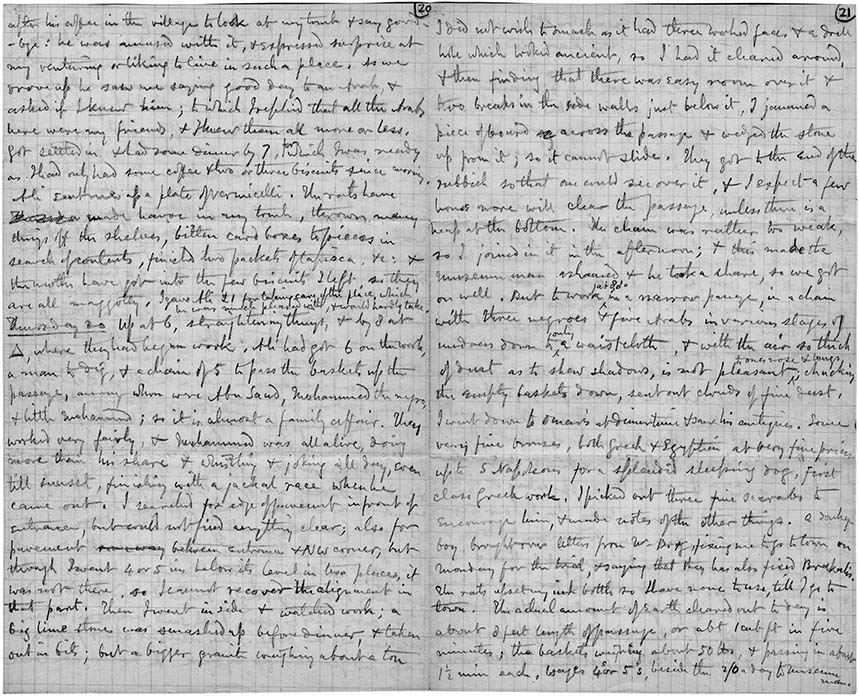 20
after his coffee in the village to look at my tomb & say good-
-bye: he was amused with it, & expressed surprise at
my venturing or liking to live in such a place. As we
drove up he saw me saying good day to an Arab, &
asked if I knew him; to which I replied that all the Arabs
here were my friends, & I knew them all more or less.
Got settled in & had some dinner by 7, for which I was ready
as I had only had some coffee & two or three biscuits since morning.
Ali sent me up a plate of vermicelli. The rats have
made havoc in my tomb, thrown many
things off the shelves, bitten card boxes to pieces in
search of contents, finished two packets of tapioca &c: &
the moths have got into the few biscuits I left so they
are all maggotty. I gave Ali £1 for taking care of the place, which
he was much pleased with, & would hardly take.
Thursday 20 Up at 6, straightening things, & by 8 at
△, where they had begun work. Ali had got 6 on the work,
a man to dig, & a chain of 5 to pass the baskets up the
passage, among whom were Abu Saud, Muhammed the negro,
& little Muhammed; so it is almost a family affair. They
worked very fairly, & Muhammed was all alive, doing
more than his share & whistling & joking all day, even
till sunset, finishing with a jackal race when he
came out. I searched for edge of pavement in front of
entrance, but could not find anything clear; also for
pavement between entrance & NW corner, but
though I went 4 or 5 ins below its level in two places, it
was not there, so I cannot recover the alignment in
that part. Then I went inside & watched work; a
big lime stone was smashed up before dinner, & taken
out in bits; but a bigger granite weighing about a ton
21
I did not wish to smash as it had three worked faces & a drill
hole which looked ancient, so I had it cleared around,
& then finding that there was easy room over it &
two breaks in the side walls just below it, I jammed a
piece of board across the passage & wedged the stone
up from it; so it cannot slide. They got to the end of the
rubbish so that one could see over it, & I expect a few
hours more will clear the passage, unless there is a
heap at the bottom. The chain was rather too weak,
so I joined in it in the afternoon; & this made the
museum man ashamed & he took a share, so we got
on well. But to work in a narrow passage, in a chain
at 80°
with three negroes & five Arabs in various stages of
nudeness down to only a waistcloth, & with the air so thick
of dust as to shew shadows, is not pleasant to nose & lungs, chucking
the empty baskets down, sent out clouds of fine dust.
I went down to Omar's at dinnertime & saw his antiques. Some
very fine bronzes, both Greek & Egyptian at very fine prices
up to 5 Napoleons for a splendid sleeping dog, first
class Greek work. I picked out three fine scarabs to
encourage him, & made notes of the other things. A donkey
boy brought over letters from asking me to go to town on
Monday for the trial, & saying that they has also fixed
The rats upset my ink bottle so I have none to use, till I go to
town. The actual amount of earth cleared out to day is
about 8 feet length of passage, or abt 1 cub ft in five
minutes; the baskets weighing about 50 lbs, & passing in about
1½ min each. Wages 4 or 5 s, beside the 2/0 a day to museum
man.